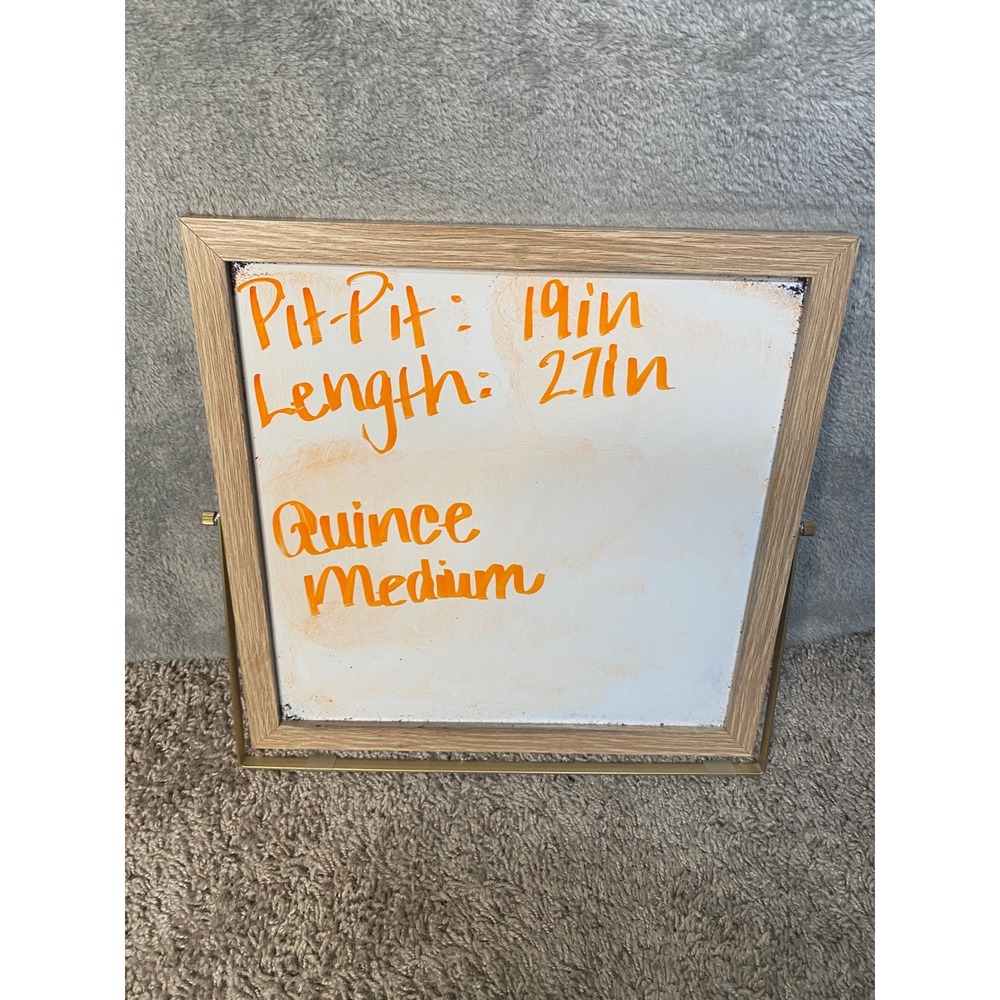 Pit-Pit: 19in
Length: 27in
Quince
Medium